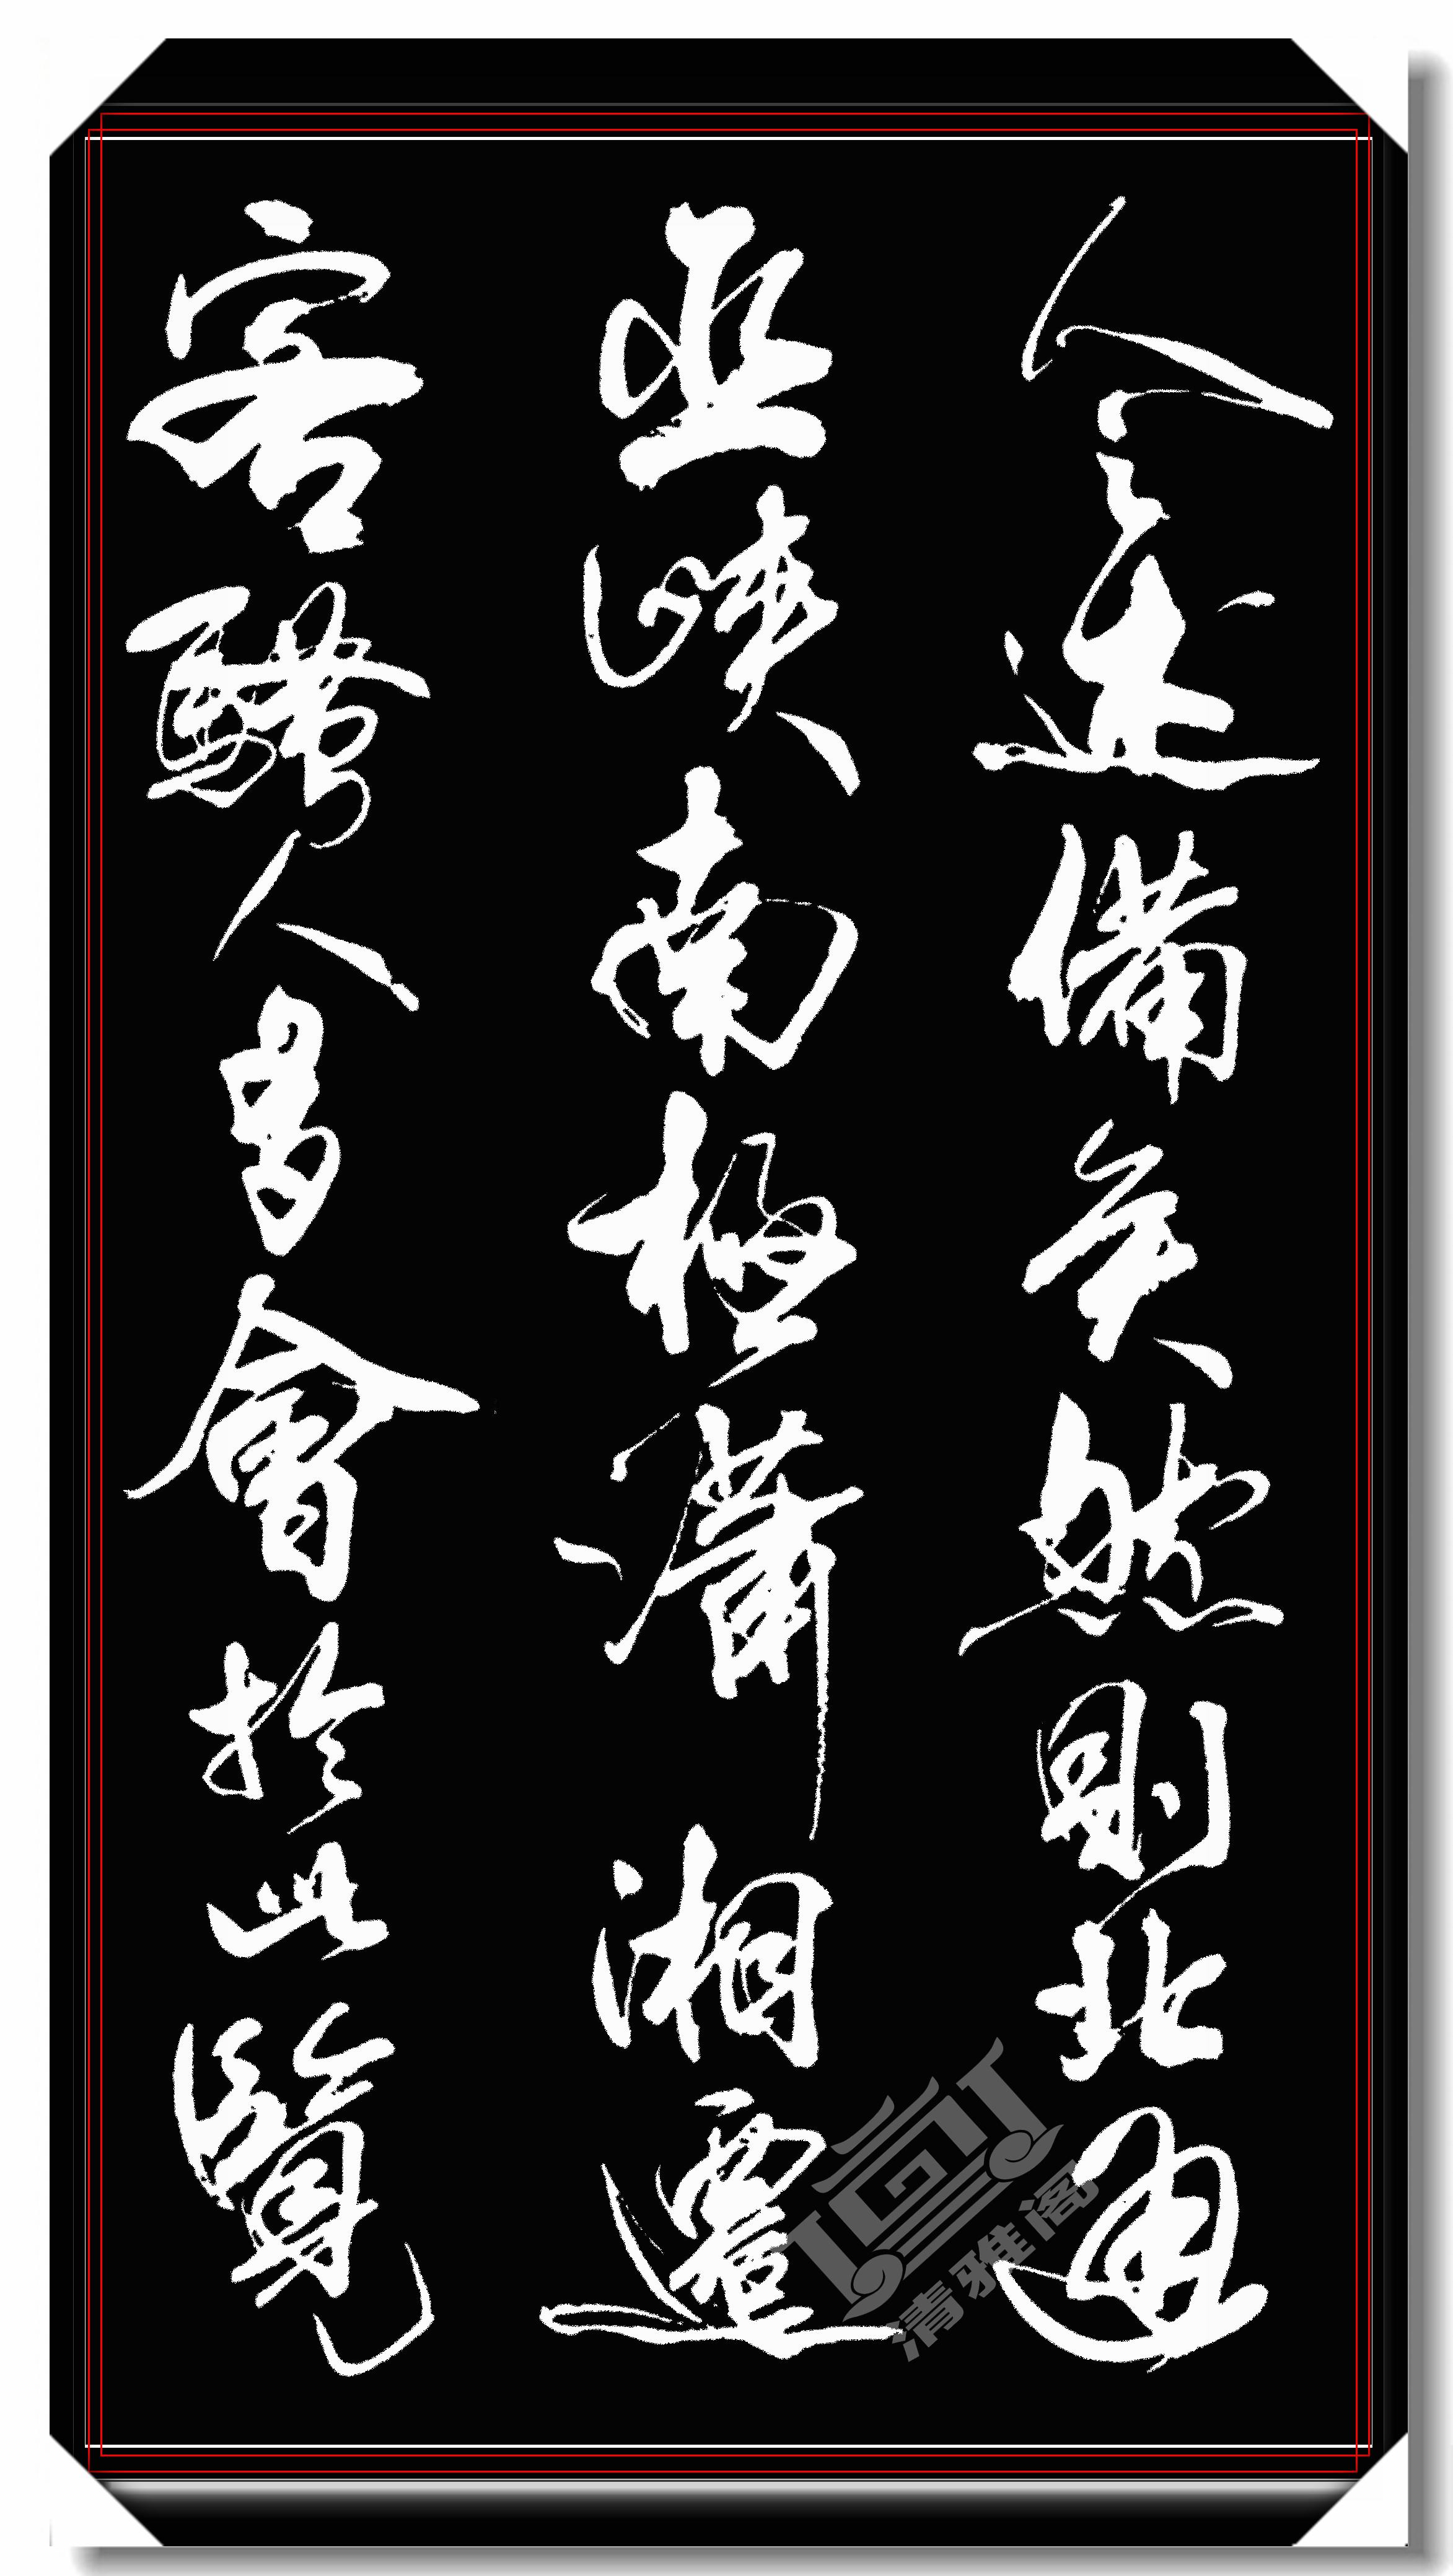 人之述備矣然則北通
巫峽南極瀟湘遷
客騷人多會於此覽
清雅阁